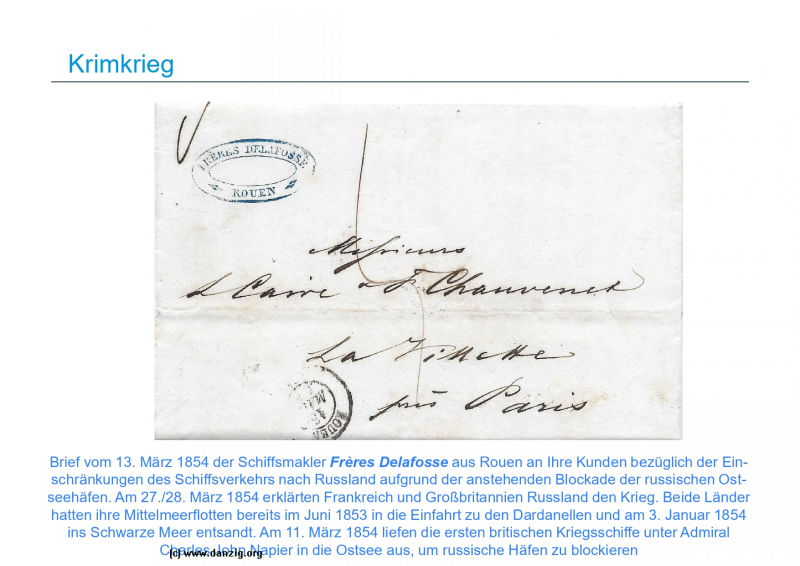 Krimkrieg
FRÈRES DELAFOSSE
ROUEN
Messieurs
L Caire & F. Chauvenet
La Villette
près Paris
Brief vom 13. März 1854 der Schiffsmakler Frères Delafosse aus Rouen an Ihre Kunden bezüglich der Ein-
schränkungen des Schiffsverkehrs nach Russland aufgrund der anstehenden Blockade der russischen Ost-
seehäfen. Am 27./28. März 1854 erklärten Frankreich und Großbritannien Russland den Krieg. Beide Länder
hatten ihre Mittelmeerflotten bereits im Juni 1853 in die Einfahrt zu den Dardanellen und am 3. Januar 1854
ins Schwarze Meer entsandt. Am 11. März 1854 liefen die ersten britischen Kriegsschiffe unter Admiral
Charles John Napier in die Ostsee aus, um russische Häfen zu blockieren
(c) www.danzig.org